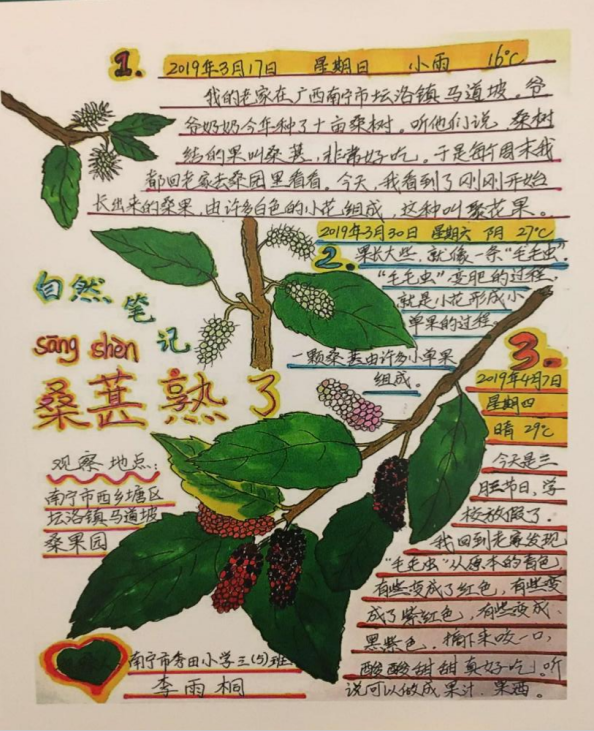 1. 2019年3月17日 星期日 小雨 16℃
我的老家在广西南宁市坛洛镇马道坡。爷
爷奶奶今年种了十亩桑树。听他们说,桑树
结的果叫桑葚,非常好吃。于是每个周末我
都回老家去桑园里看看。今天,我看到了刚刚开始
长出来的桑果,由许多白色的小花组成,这种叫聚花果。
2019年3月30日 星期六 阴 27℃
2. 果长大些,就像一条“毛毛虫”。
“毛毛虫”变肥的过程,
就是小花形成小
单果的过程
一颗桑葚由许多小单果
组成。
自然笔记
sāng shèn
桑葚熟了
观察地点:
南宁市西乡塘区
坛洛镇马道坡
桑果园
3.
2019年4月7日
星期四
晴 29℃
今天是三
月三节日,学
校放假了。
我回到老家发现
“毛毛虫”从原本的青色
有些变成了红色,有些变
成了紫红色,有些变成
黑紫色。摘下来咬一口,
酸酸甜甜真好吃!听
说可以做成果汁、果酒。
南宁市秀田小学三(5)班
李雨桐